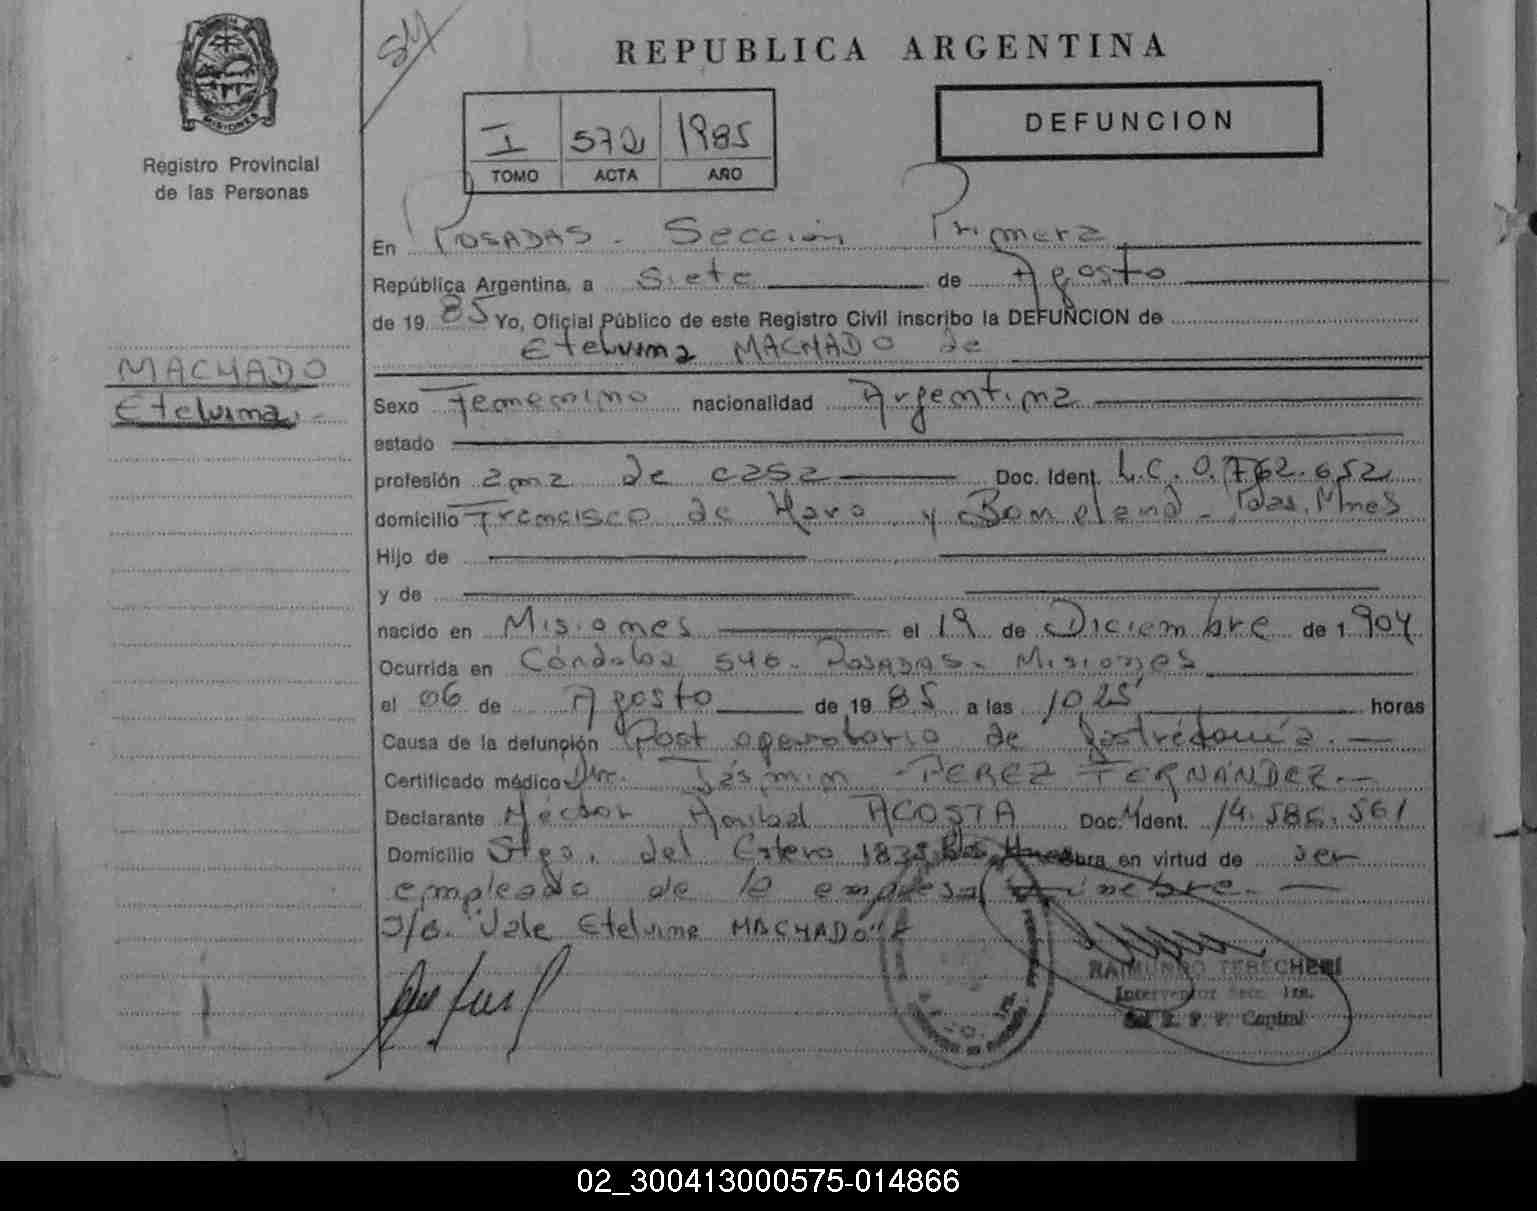 REPUBLICA ARGENTINA
MISIONES
Registro Provincial
de las Personas
I 572 1985
TOMO ACTA AÑO
DEFUNCION
En POSADAS - Sección Primera
República Argentina, a Siete de Agosto
de 1985 Yo, Oficial Público de este Registro Civil inscribo la DEFUNCION de
Etelvina MACHADO de
MACHADO
Etelvina.-
Sexo Femenino nacionalidad Argentina
estado
profesión ama de casa Doc. Ident. L.C. 0.762.652
domicilio Francisco de Haro y Bompland - Pdas. Mnes
Hijo de
y de
nacido en Misiones el 19 de Diciembre de 1904
Ocurrida en Córdoba 546 - POSADAS - Misiones
el 06 de Agosto de 1985 a las 10,25' horas
Causa de la defunción Post operatorio de gastrectomía.-
Certificado médico Dr. PEREZ FERNANDEZ.-
Declarante Héctor Anibal ACOSTA Doc. Ident. 14.586.561
Domicilio Stgo. del Estero Obra en virtud de ser
empleado de la empresa fúnebre.-
S/b. "Vale Etelvina MACHADO"
RAIMUNDO TERECHERI
Interventor Secc. 1ra.
del R. P. P. Capital
02_300413000575-014866